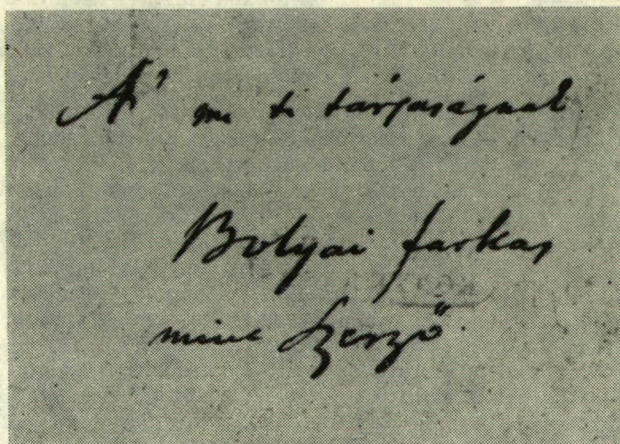 A' m. t. társaságnak
Bolyai farkas
mint Szerző